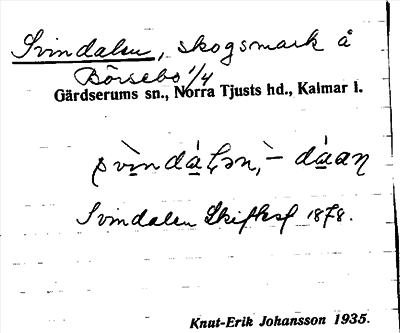 Svindalen, skogsmark å
Börsebo 1/4
Gärdserums sn., Norra Tjusts hd., Kalmar l.
Svindalen Skifksf 1878.
Knut-Erik Johansson 1935.